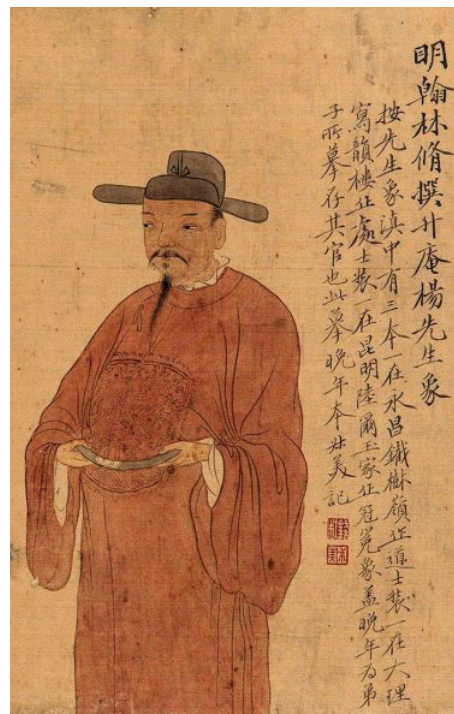 明翰林修撰升庵楊先生象
按先生象滇中有三本一在永昌鐵樹嶺作道士裝一在大理
寫韻樓作處士裝一在昆明陸爾玉家作冠冕象蓋晚年為弟
子所摹存其官也此摹晚年本壯美記